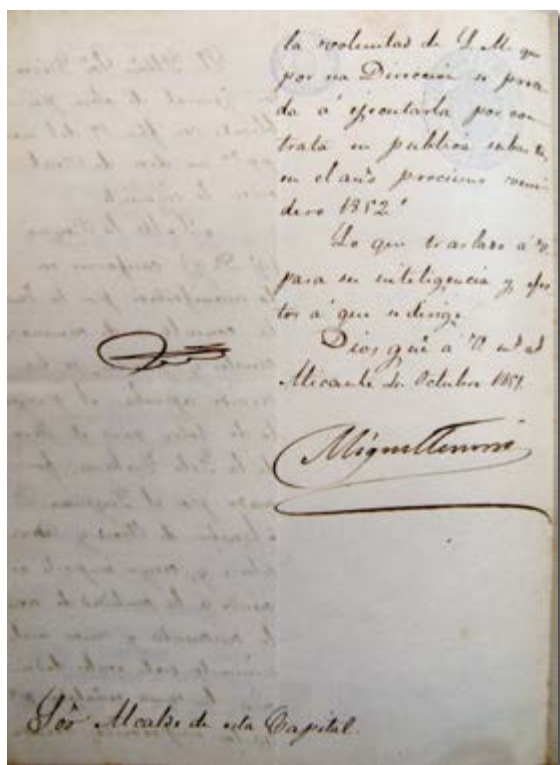 la voluntad de S. M. que
por esa Direccion se proce
da á ejecutarla por con
trata en publica subasta,
en el año procsimo veni
dero 1852."
Lo que traslado á V.
para su inteligencia y efec
tos á que se dirige.
Dios gue á V. ms. as.
Alicante 21 Octubre 1851.
Miguel Tenorio
Sor Alcalde de esta Capital.